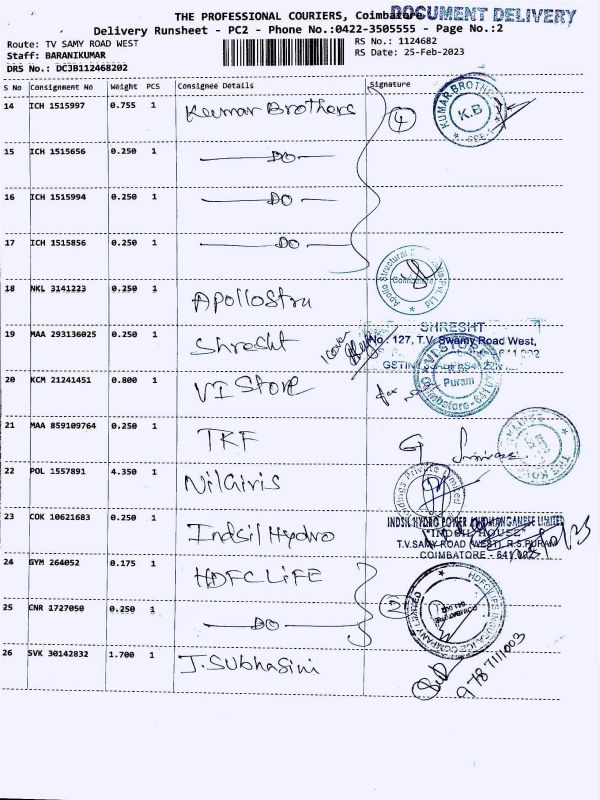 THE PROFESSIONAL COURIERS, Coimbatore
DOCUMENT DELIVERY
Delivery Runsheet - PC2 - Phone No.:0422-3505555 - Page No.:2
Route: TV SAMY ROAD WEST
RS No.: 1124682
Staff: BARANIKUMAR
RS Date: 25-Feb-2023
DRS No.: DCJB112468202
S No Consignment No Weight PCS Consignee Details Signature
14 ICH 1515997 0.755 1 Kumar Brothers 4
KUMAR BROTHERS K.B
15 ICH 1515656 0.250 1 DO
16 ICH 1515994 0.250 1 DO
17 ICH 1515856 0.250 1 DO
18 NKL 3141223 0.250 1 Apollostru
Apollo Structural Pvt. Ltd Coimbatore
19 MAA 293136025 0.250 1 Shresht
SHRESHT
No: 127, T.V. Swamy Road West,
20 KCM 21241451 0.800 1 VI Store
VI STORE Puram Coimbatore
21 MAA 859109764 0.250 1 TKF
22 POL 1557891 4.350 1 Nilgiris
Private Limited
23 COK 10621683 0.250 1 Indsil Hydro
INDSIL HYDRO POWER AND MANGANESE LIMITED
"INDSIL HOUSE"
T.V.SAMY ROAD (WEST), R.S.PURAM
COIMBATORE - 641 002
24 GYM 264052 0.175 1 HDFC LiFE
HDFC LIFE INSURANCE COMPANY LIMITED
25 CNR 1727050 0.250 1 DO
26 SVK 30142832 1.700 1 J. Subhasini
9787111003